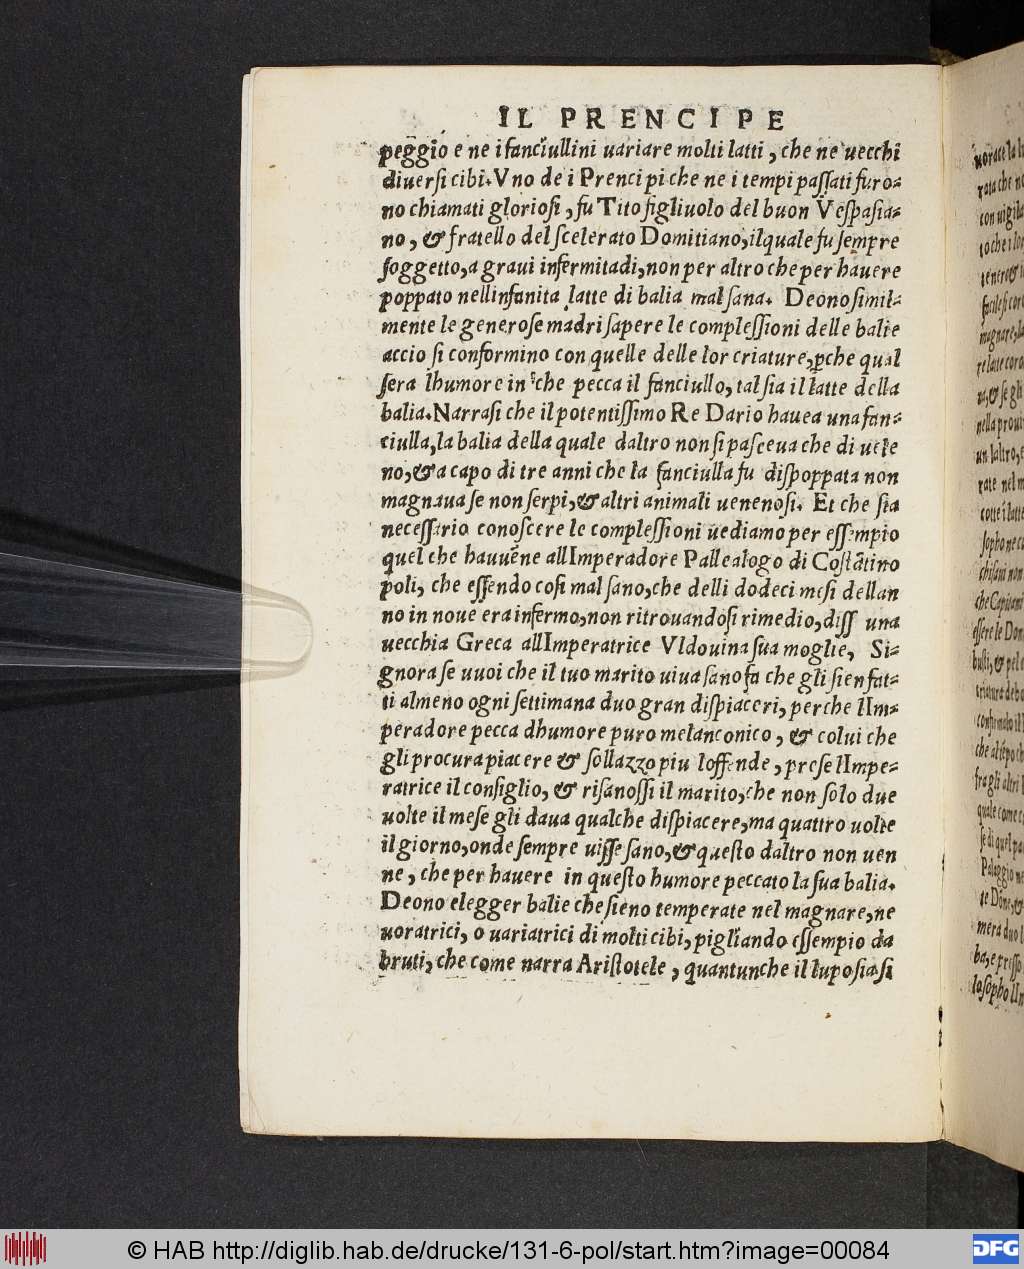 IL PRENCIPE
peggio e ne i fanciullini uariare molti latti, che ne uecchi
diuersi cibi. Vno de i Prencipi che ne i tempi passati furo-
no chiamati gloriosi, fu Tito figliuolo del buon Vespasia-
no, & fratello del scelerato Domitiano, ilquale fu sempre
soggetto, a graui infermitadi, non per altro che per hauere
poppato nellinfanita latte di balia mal sana. Deono simil-
mente le generose madri sapere le complessioni delle balie
accio si conformino con quelle delle lor criature, ꝑche qual
sera lhumore in che pecca il fanciullo, tal sia il latte della
balia. Narrasi che il potentissimo Re Dario hauea una fan-
ciulla, la balia della quale daltro non si pasceua che di uele
no, & a capo di tre anni che la fanciulla fu dispoppata non
magnaua se non serpi, & altri animali uenenosi. Et che sia
necessario conoscere le complessioni uediamo per essempio
quel che hauuēne allImperadore Pallealogo di Costātino
poli, che essendo cosi mal sano, che delli dodeci mesi dellan
no in noue era infermo, non ritrouandosi rimedio, diss una
uecchia Greca allImperatrice Vldouina sua moglie, Si-
gnora se uuoi che il tuo marito uiua sano fa che gli sien fat-
ti almeno ogni settimana duo gran dispiaceri, perche lIm-
peradore pecca dhumore puro melanconico, & colui che
gli procura piacere & sollazzo piu loffende, prese lImpe-
ratrice il consiglio, & risanossi il marito, che non solo due
uolte il mese gli daua qualche dispiacere, ma quattro uolte
il giorno, onde sempre uisse sano, & questo daltro non uen
ne, che per hauere in questo humore peccato la sua balia.
Deono elegger balie che sieno temperate nel magnare, ne
uoratrici, o uariatrici di molti cibi, pigliando essempio da
bruti, che come narra Aristotele, quantunche il lupo sia si
© HAB http://diglib.hab.de/drucke/131-6-pol/start.htm?image=00084
DFG